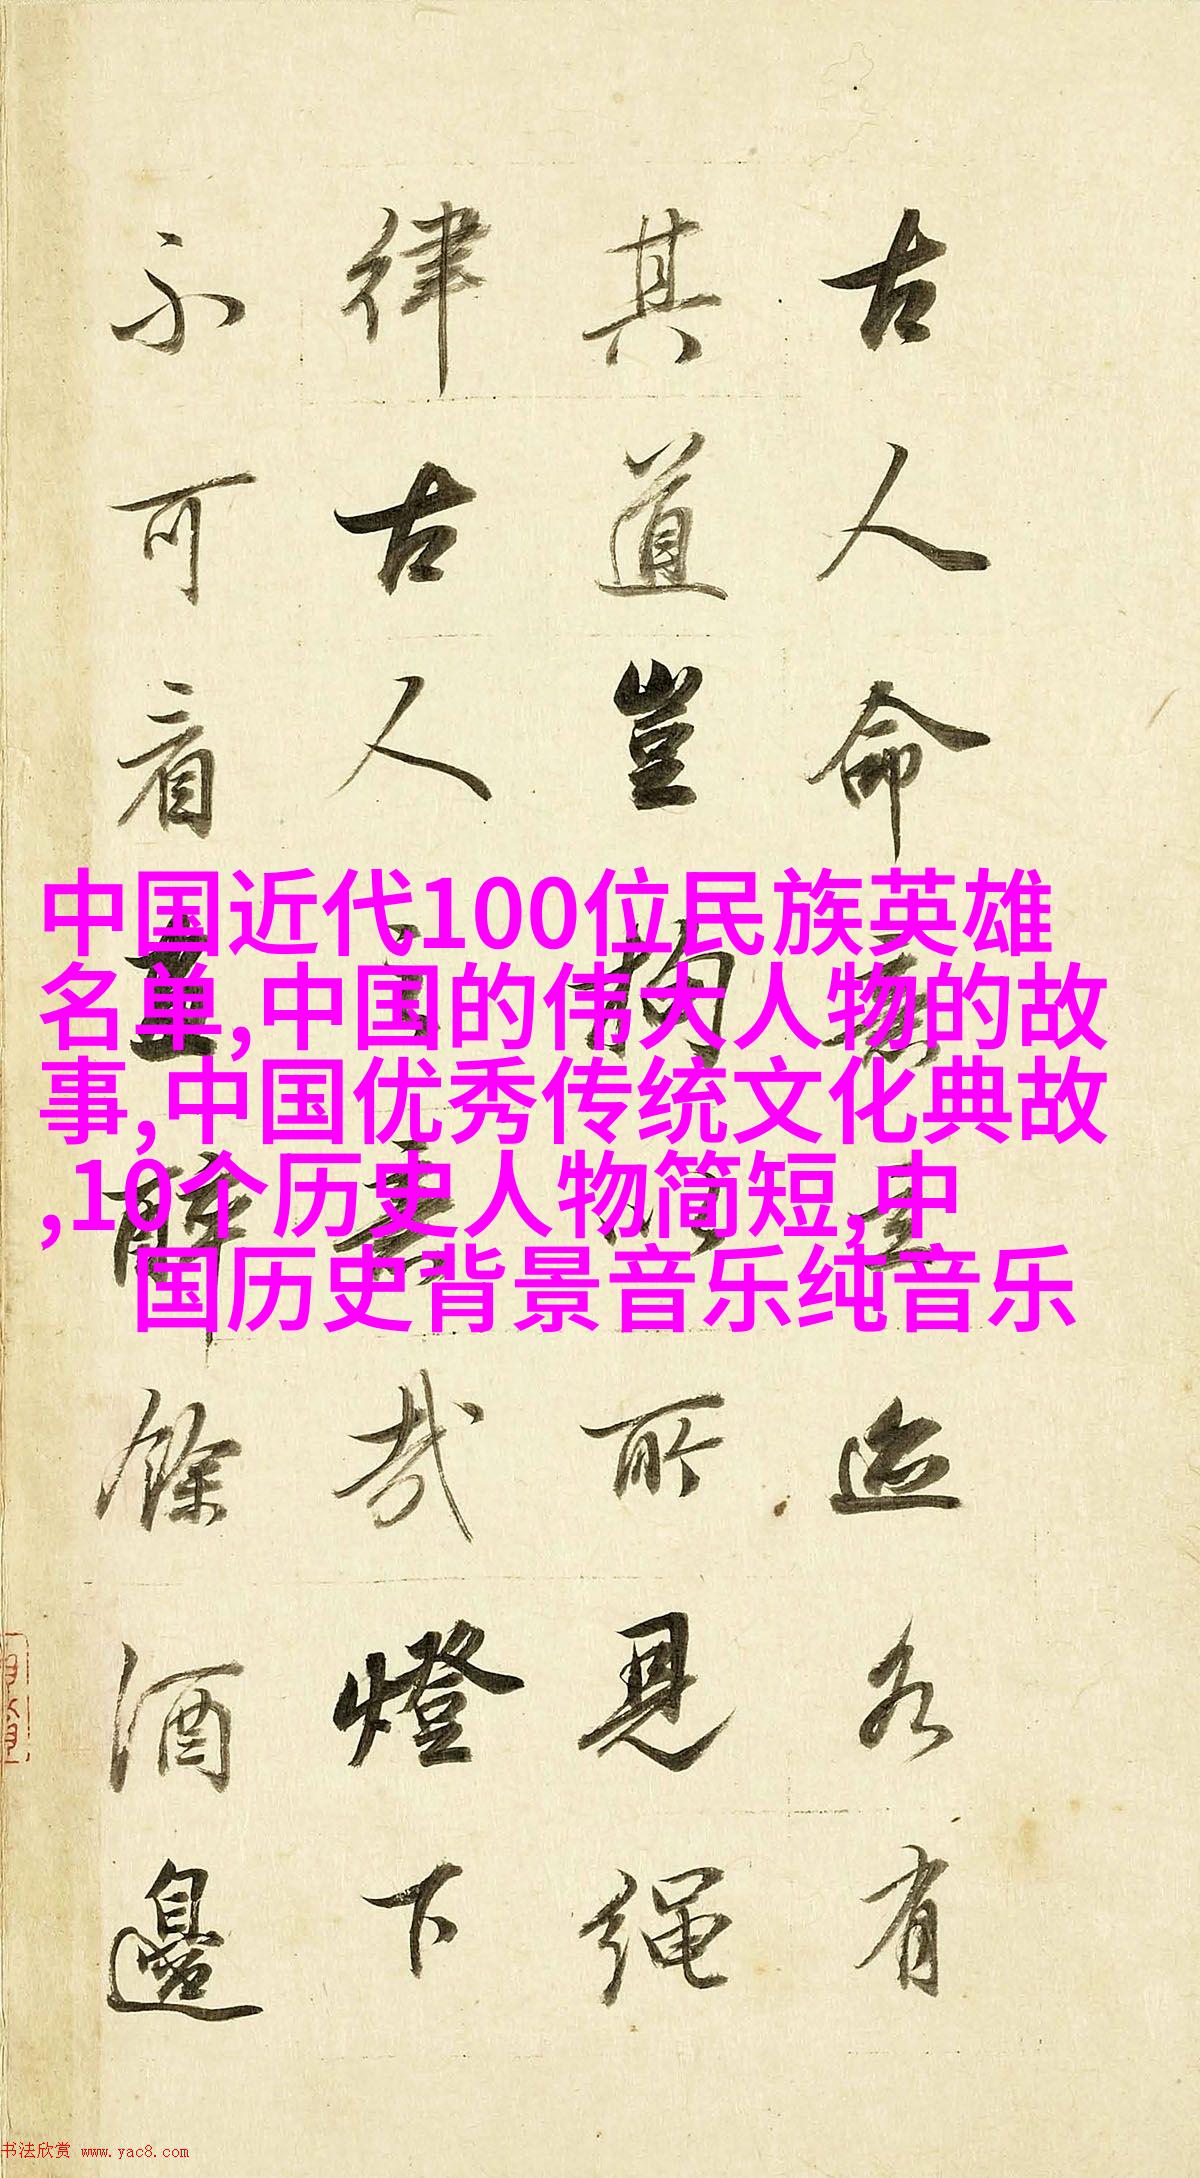 古人命意立迹各有
其道豈拘以所見繩
律古人
哉燈下
不可看
醉餘酒邊
中国近代100位民族英雄
名单,中国的伟大人物的故
事,中国优秀传统文化典故
,10个历史人物简短,中
国历史背景音乐纯音乐
书法欣赏 www.yac8.com